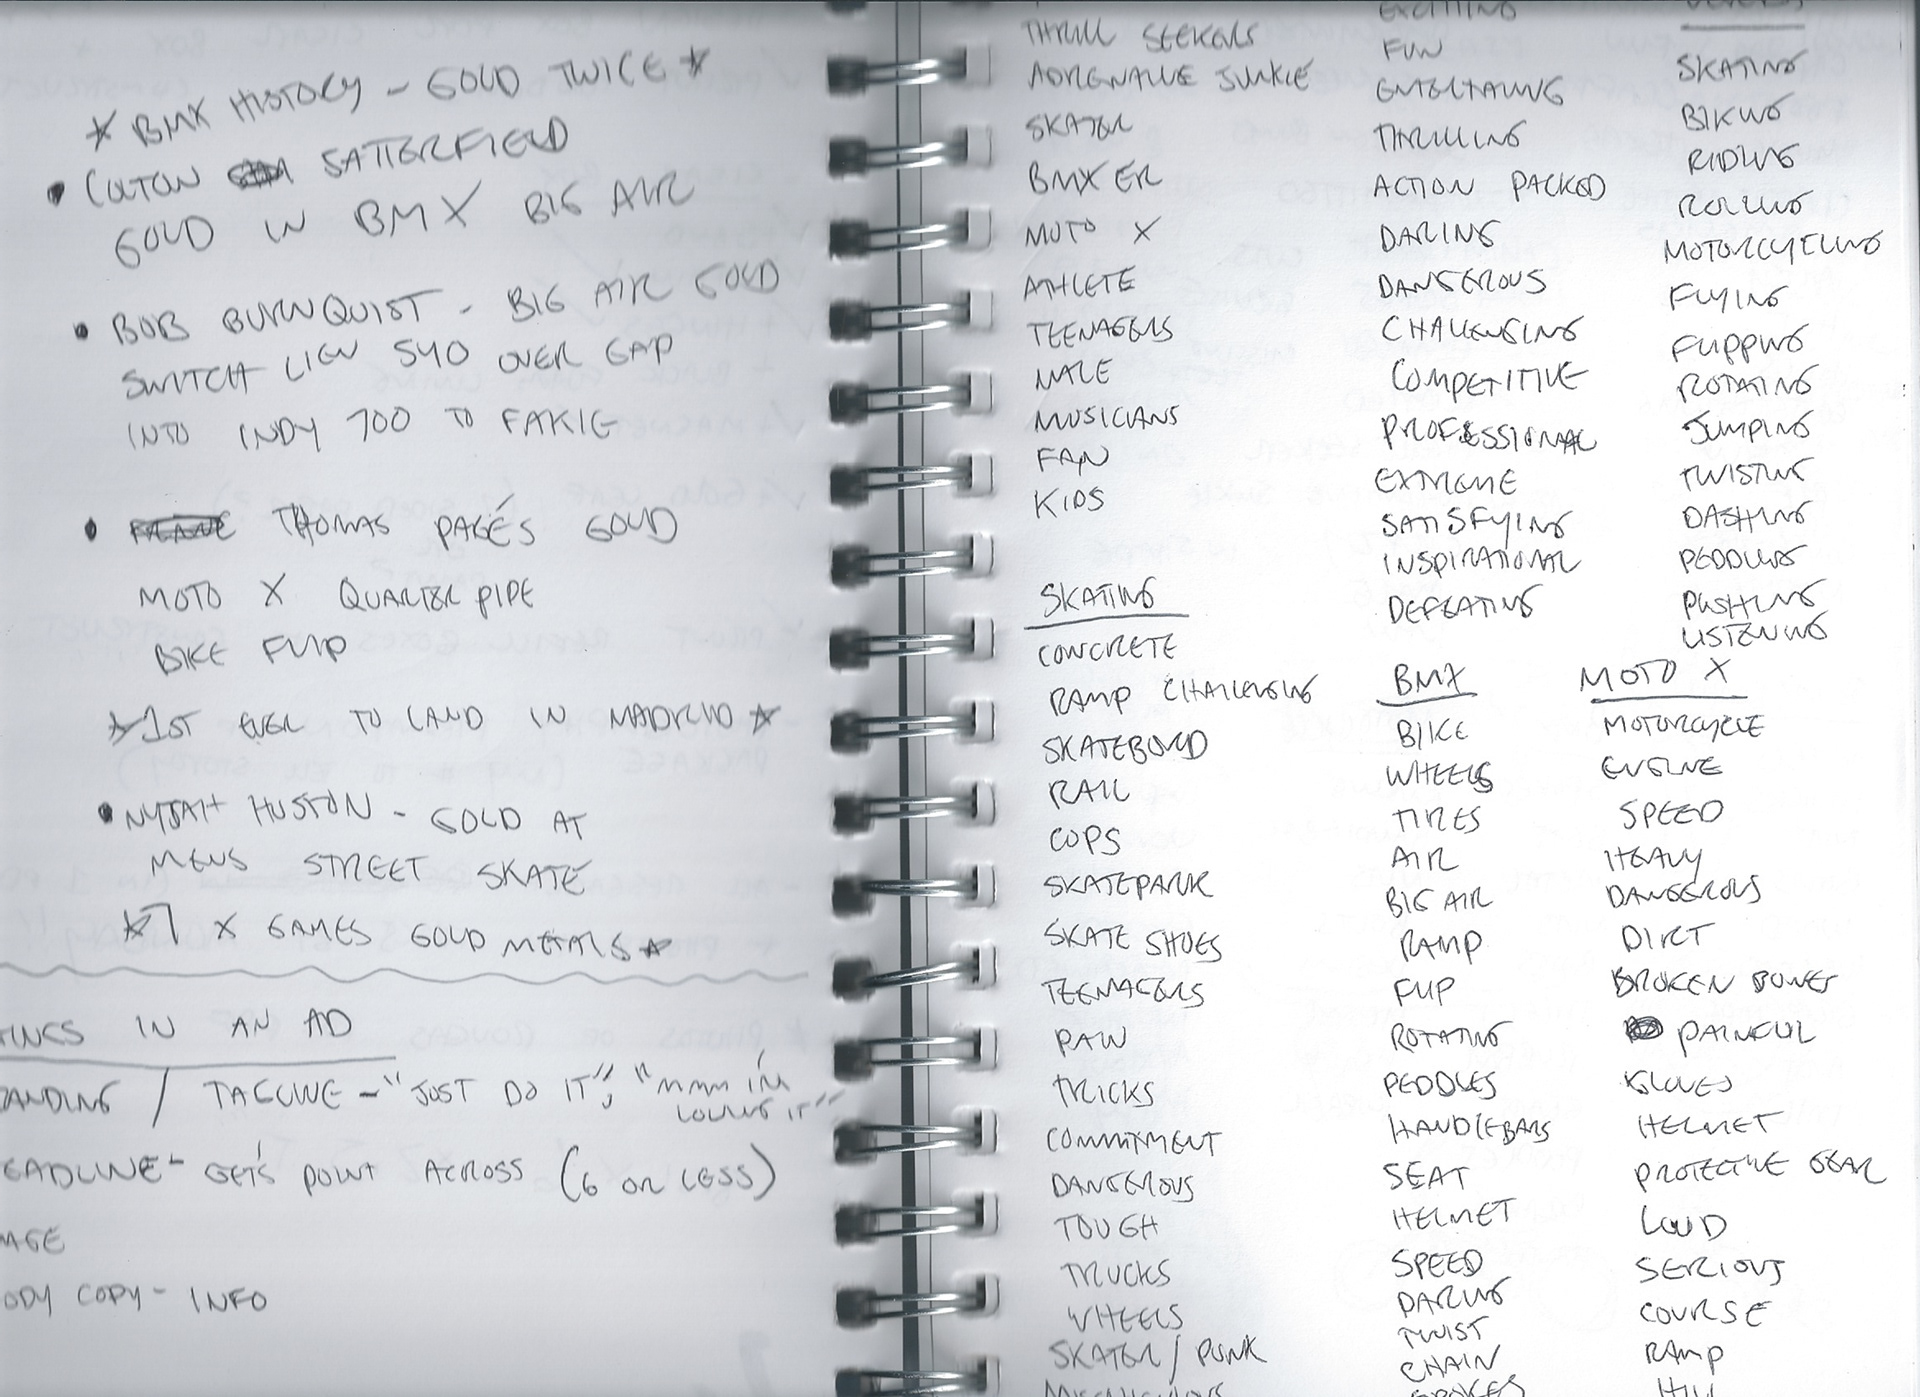 ★ BMX HISTORY - GOLD TWICE ★
• COLTON SATTERFIELD
GOLD IN BMX BIG AIR
• BOB BURNQUIST - BIG AIR GOLD
SWITCH LIEN 540 OVER GAP
INTO INDY 700 TO FAKIE
• THOMAS PAGÉS GOLD
MOTO X QUARTER PIPE
BIKE FLIP
★ 1ST EVER TO LAND IN MADRID ★
• NYJAH HUSTON - GOLD AT
MENS STREET SKATE
★ 7 X GAMES GOLD METALS ★
TINGS IN AN AD
ANDING / TAGLINE - "JUST DO IT", "MMM I'M
LOVING IT"
EADLINE - GET'S POINT ACROSS (6 OR LESS)
AGE
ODY COPY - INFO
THRILL SEEKERS
ADRENALINE JUNKIE
SKATER
BMX ER
MOTO X
ATHLETE
TEENAGERS
MALE
MUSICIANS
FAN
KIDS
EXCITING
FUN
ENTERTAINING
THRILLING
ACTION PACKED
DARING
DANGEROUS
CHALLENGING
COMPETITIVE
PROFESSIONAL
EXTREME
SATISFYING
INSPIRATIONAL
DEFEATING
SKATING
BIKING
RIDING
ROLLING
MOTORCYCLING
FLYING
FLIPPING
ROTATING
JUMPING
TWISTING
DASHING
PEDDLING
PUSHING
LISTENING
SKATING
CONCRETE
RAMP CHALLENGING
SKATEBORD
RAIL
COPS
SKATEPARK
SKATE SHOES
TEENAGERS
RAW
TRICKS
COMMITMENT
DANGEROUS
TOUGH
TRUCKS
WHEELS
SKATER / PUNK
BMX
BIKE
WHEELS
TIRES
AIR
BIG AIR
RAMP
FLIP
ROTATING
PEDDLES
HANDLEBARS
SEAT
HELMET
SPEED
DARING
TWIST
CHAIN
MOTO X
MOTORCYCLE
ENGINE
SPEED
HEAVY
DANGEROUS
DIRT
BROKEN BONES
PAINFUL
GLOVES
HELMET
PROTECTIVE GEAR
LOUD
SERIOUS
COURSE
RAMP
HILL